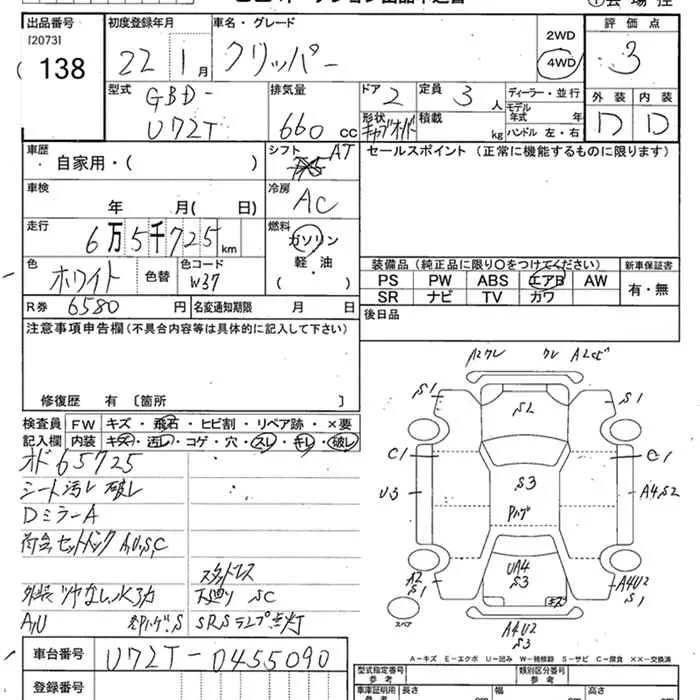 出品番号 初度登録年月 車名・グレード 評価点
[2073]
138 22 1月 クリッパー 2WD 4WD 3
型式 排気量 ドア 定員 ディーラー・並行 外装 内装
GBD-U72T 660cc 2 3人 モデル年式 年 D D
形状 キャブオーバ 積載 kg ハンドル 左・右
車歴 自家用・( ) シフト AT セールスポイント (正常に機能するものに限ります)
車検 年 月( 日) 冷房 AC
走行 6万5千725km 燃料 ガソリン 軽・油 ( )
色 ホワイト 色替 色コード W37
装備品 (純正品に限り〇をつけてください) 新車保証書
PS PW ABS エアB AW 有・無
SR ナビ TV カワ
R券 6580円 名変通知期限 月 日 後日品
注意事項申告欄(不具合内容等は具体的に記入して下さい)
修復歴 有 〔箇所 〕
検査員記入欄 FW キズ・飛石・ヒビ割・リペア跡・×要
内装 キズ・汚レ・コゲ・穴・スレ・キレ・破レ
オド65725
シート汚レ 破レ
DミラーA
荷台、セットバック A,U,S,C
スタットレス
外装ツヤなし、水アカ 下廻り SC
A/U SRSランプ点灯
A2ワレ ワレ A2サビ
S1 SL S1
C1 C1
U3 S3 A4,S2
Pハゲ
A2 S1 UA4 S3 A4U2 S1
キズ
スペア
A4U2
S3
車台番号 U72T-0455090
登録番号
A-キズ E-エクボ U-凹み W-補修跡 S-サビ C-腐食 ××-交換済
型式指定番号 参考 類別区分番号 参考
車庫証明用 参考 長さ cm 幅 cm 高さ cm